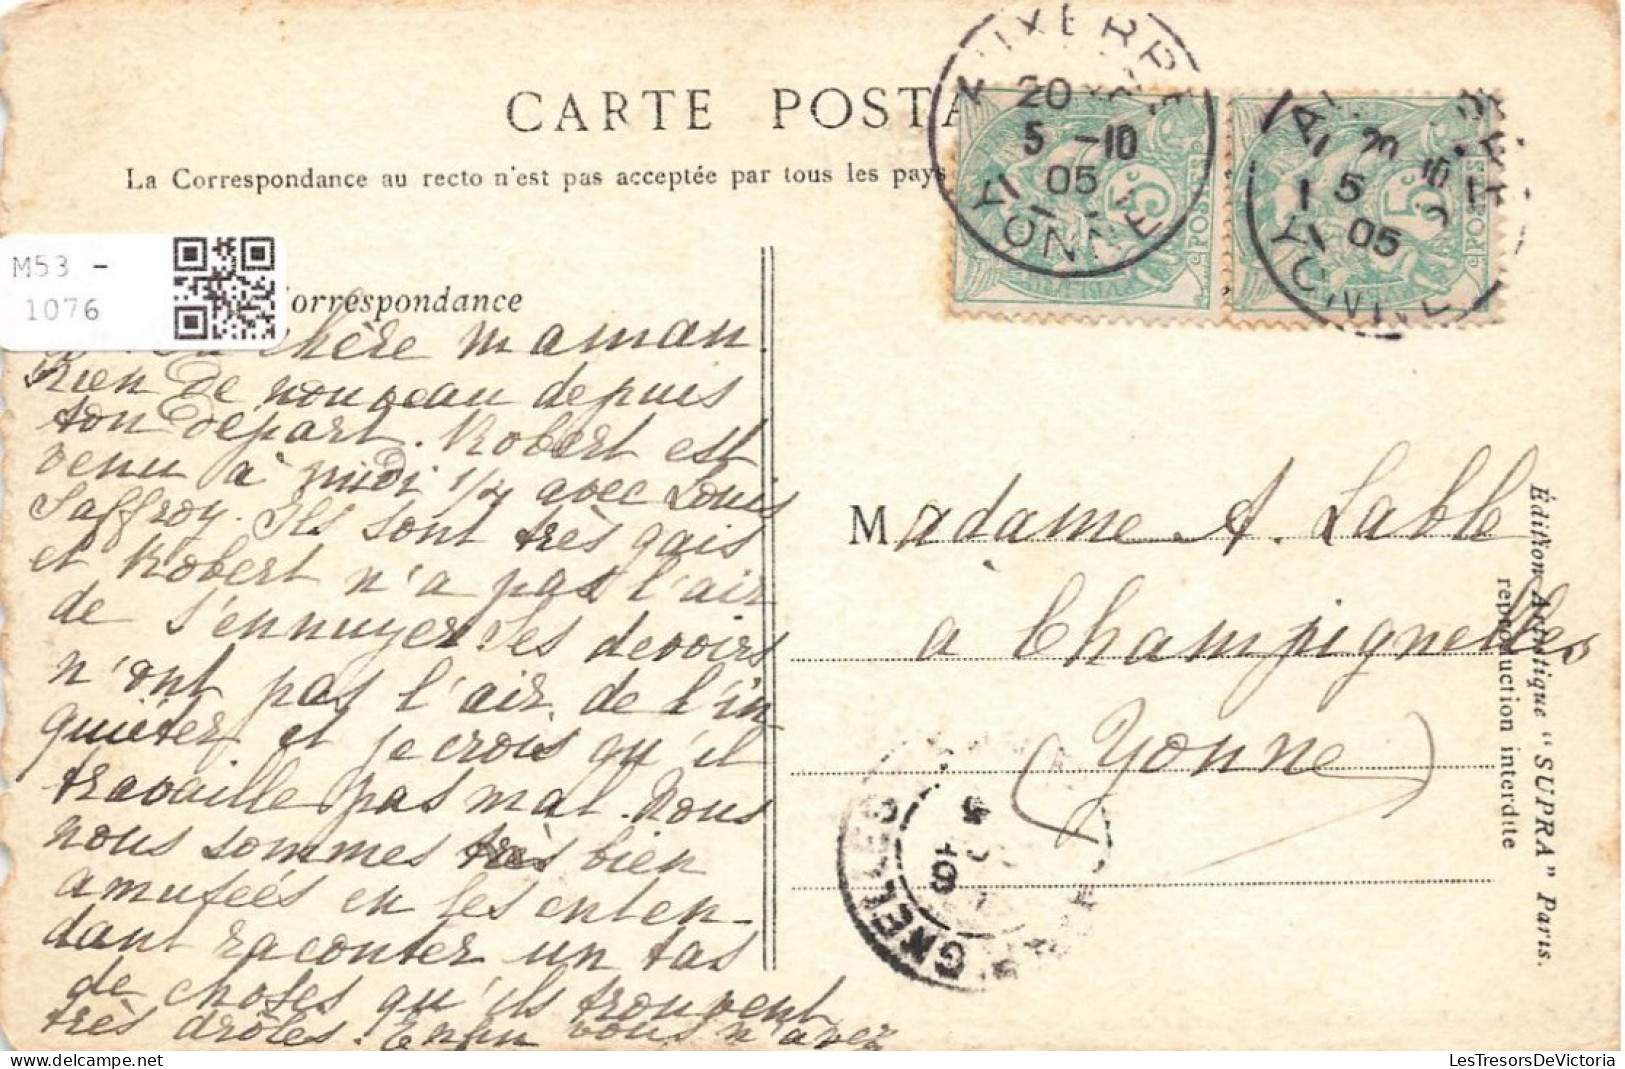 CARTE POSTA
La Correspondance au recto n'est pas acceptée par tous les pays
M53 -
1076
orrespondance
chère maman
Rien de nouveau depuis
ton départ. Robert est
venu à midi 1/4 avec Louis
Saffroy. Ils sont très gais
et Robert n'a pas l'air
de s'ennuyer. Ses devoirs
n'ont pas l'air de l'in
quiéter et je crois qu'il
travaille pas mal. Nous
nous sommes très bien
amusées en les enten-
dant raconter un tas
de choses qu'ils trouvent
très drôles. Enfin vous n'avez
20
5 -10
05
YONNE
5
POSTES
5
05
YONNE
5
Madame A. Lable
à Champignelles
Yonne
GNELLES
Édition Artistique "SUPRA" Paris.
reproduction interdite
LesTresorsDeVictoria